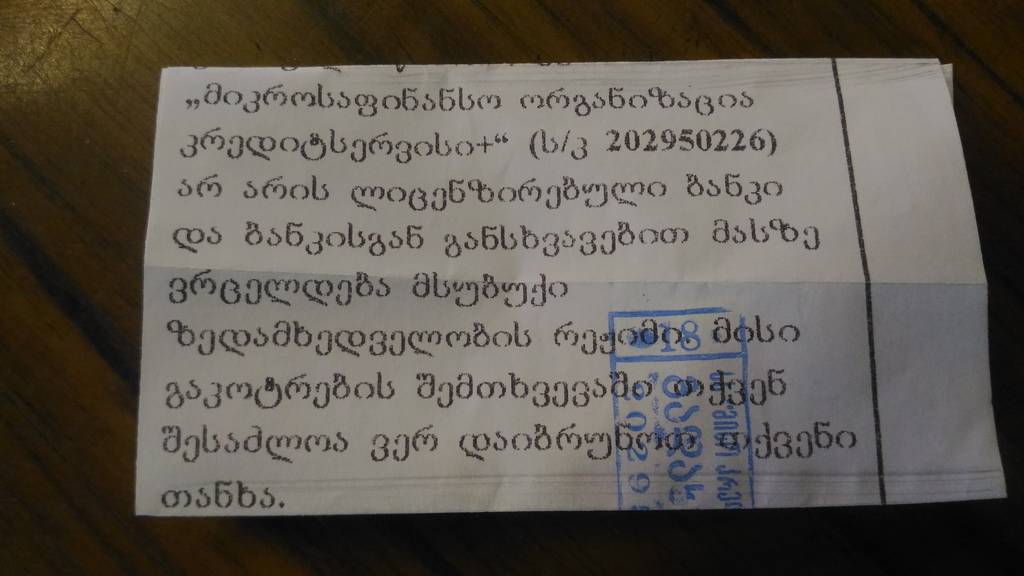 „მიკროსაფინანსო ორგანიზაცია
კრედიტსერვისი+“ (ს/კ 202950226)
არ არის ლიცენზირებული ბანკი
და ბანკისგან განსხვავებით მასზე
ვრცელდება მსუბუქი
ზედამხედველობის რეჟიმი. მისი
გაკოტრების შემთხვევაში თქვენ
შესაძლოა ვერ დაიბრუნოთ თქვენი
თანხა.